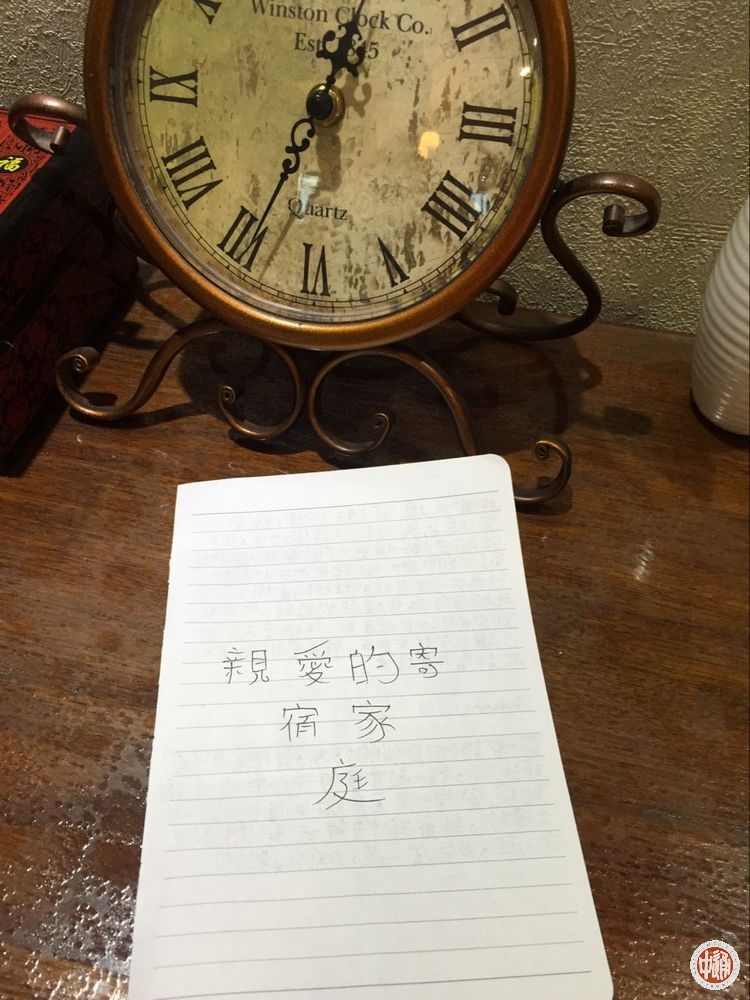 Winston Clock Co.
Est.
II
III
IIII
V
VI
VII
VIII
IX
Quartz
福
親愛的寄
宿家
庭